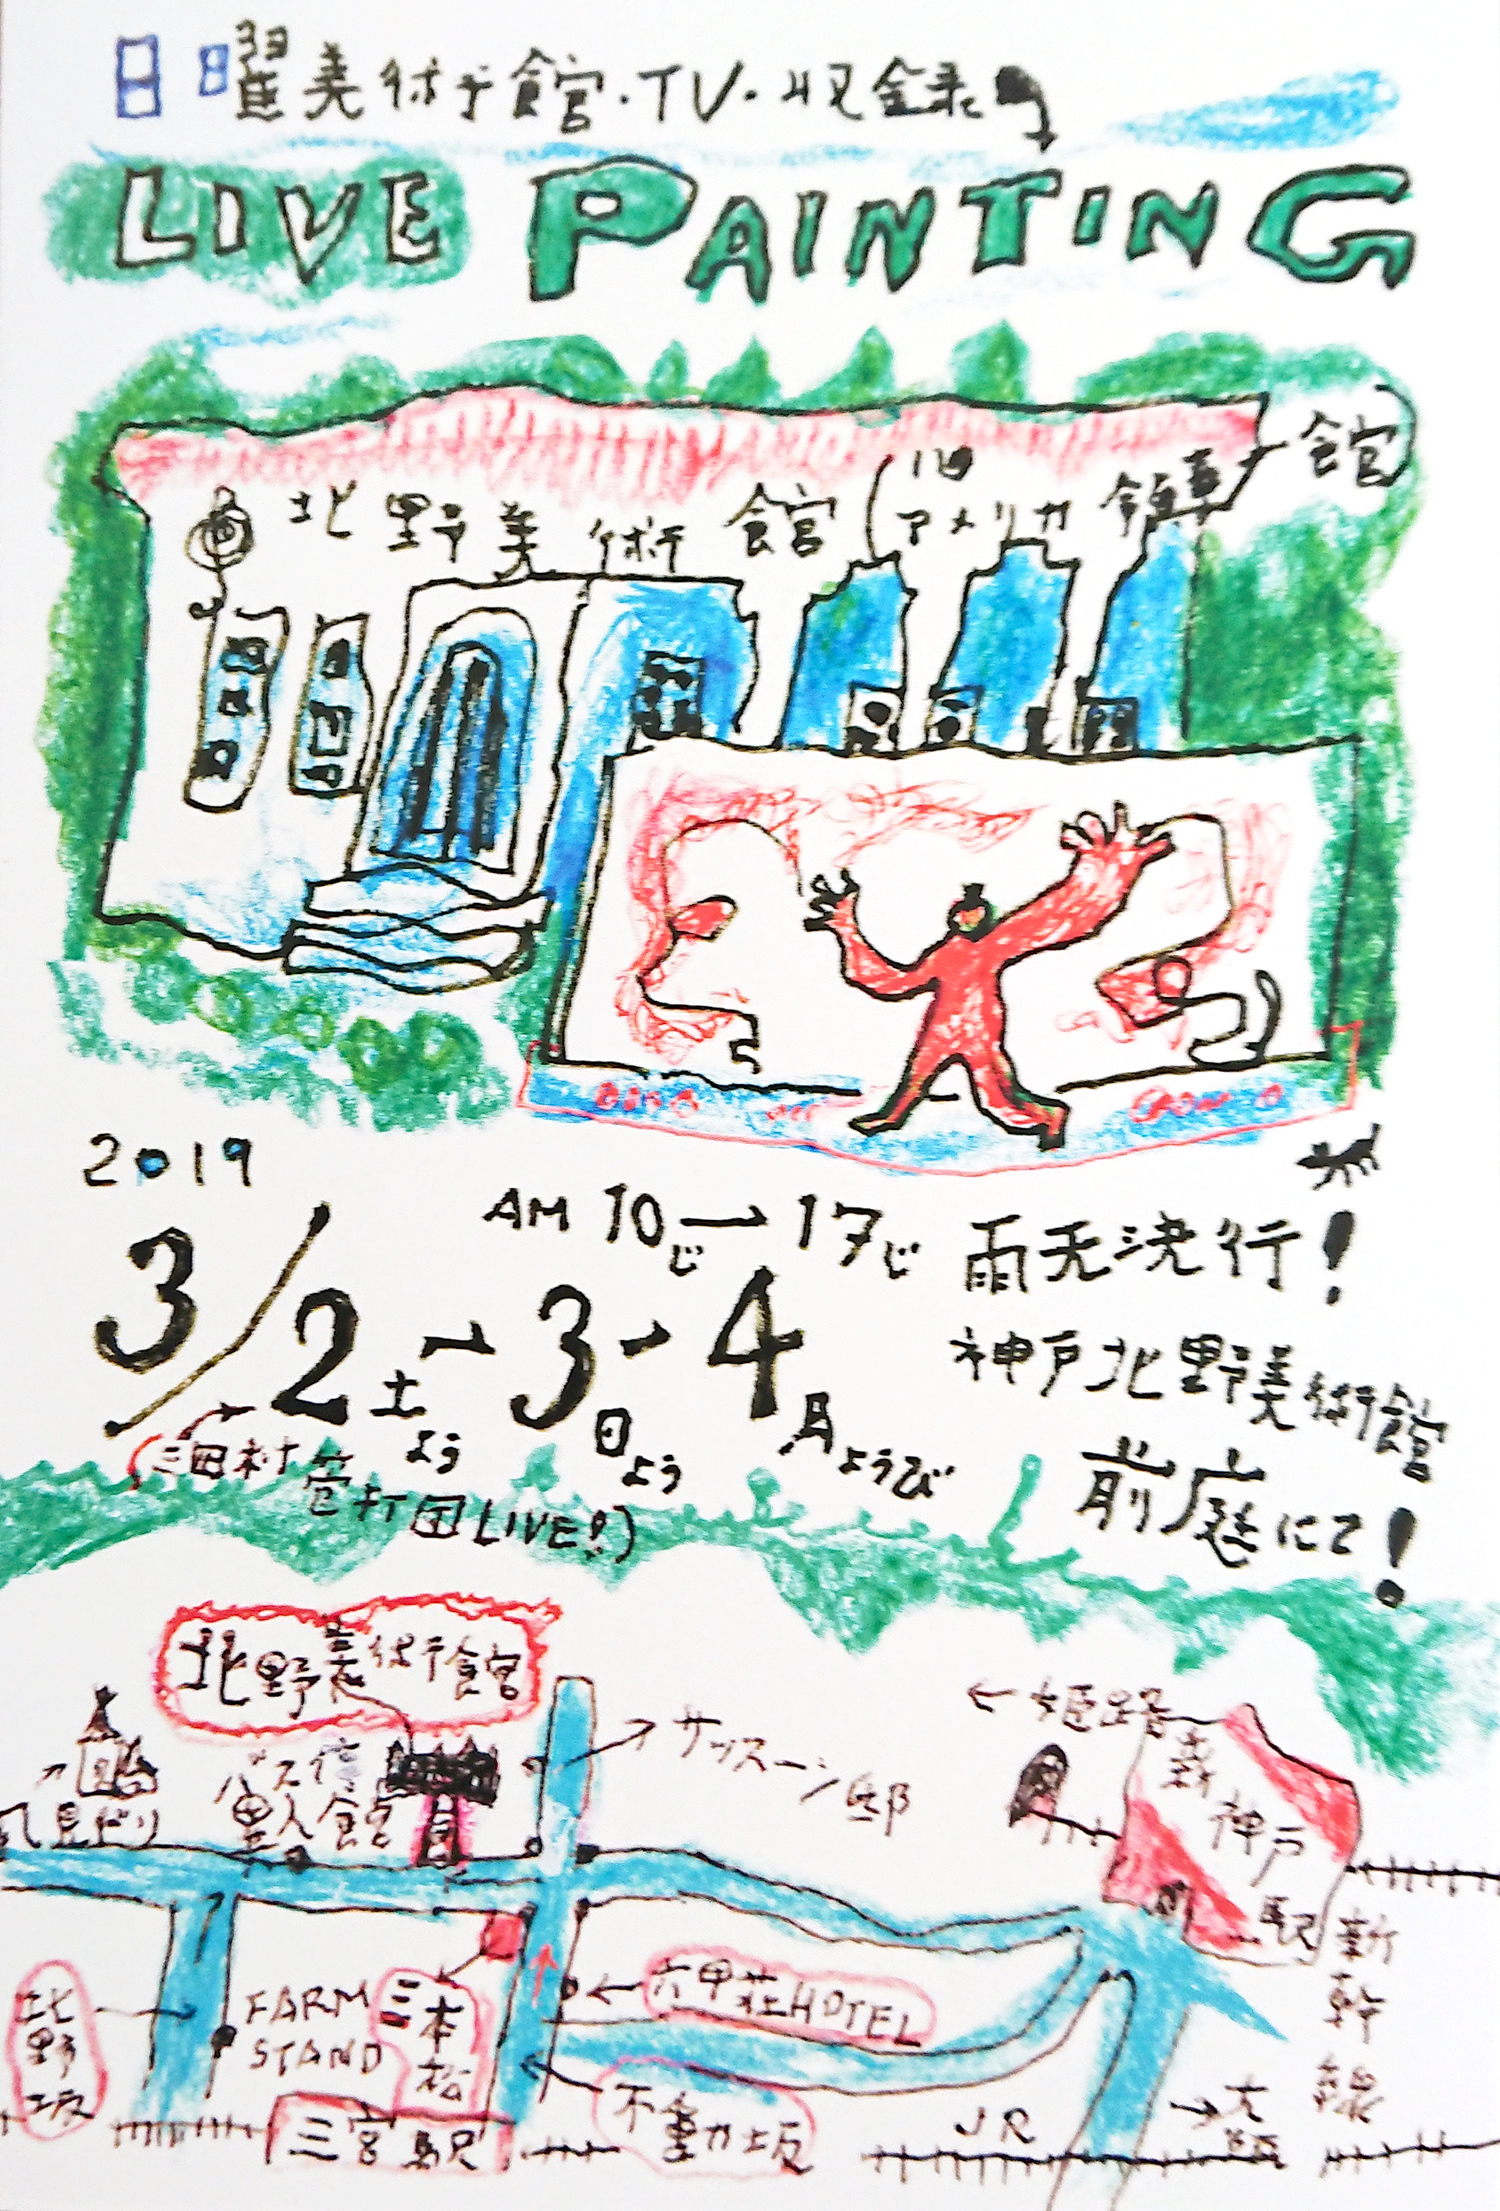 日曜美術館・TV・収録
LIVE PAINTING
北野美術館(旧アメリカ領事館
2019
AM 10じ→17じ 雨天決行!
3/2土よう→3日よう→4月ようび
神戸北野美術館
前庭にて!
三田村管打団LIVE!)
北野美術館
←姫路
新神戸駅
サッスーン邸
風見どり
異人館
新幹線
北野坂
FARM
STAND
三本松
←六甲荘HOTEL
不動坂
三宮駅
JR
→大阪